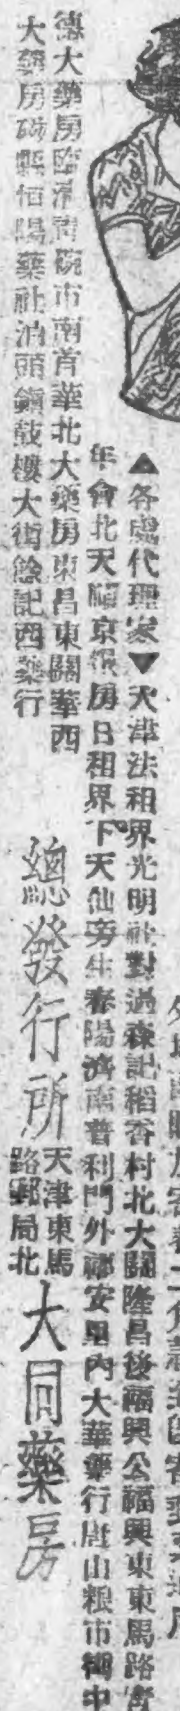 ▲各處代理家▼天津法租界光明社對過森記稻香村北大關隆昌後福興公福興東東馬路青
年會北天順京報房日租界下天仙旁生春陽濟南普利門外福安里內大華藥行唐山粮市街中
德大藥房臨清南碗市南首華北大藥房東昌東關華西
大藥房磁縣恒陽藥社泊頭鎮鼓樓大街餘記西藥行
總發行所
天津東馬
路郵局北
大同藥房